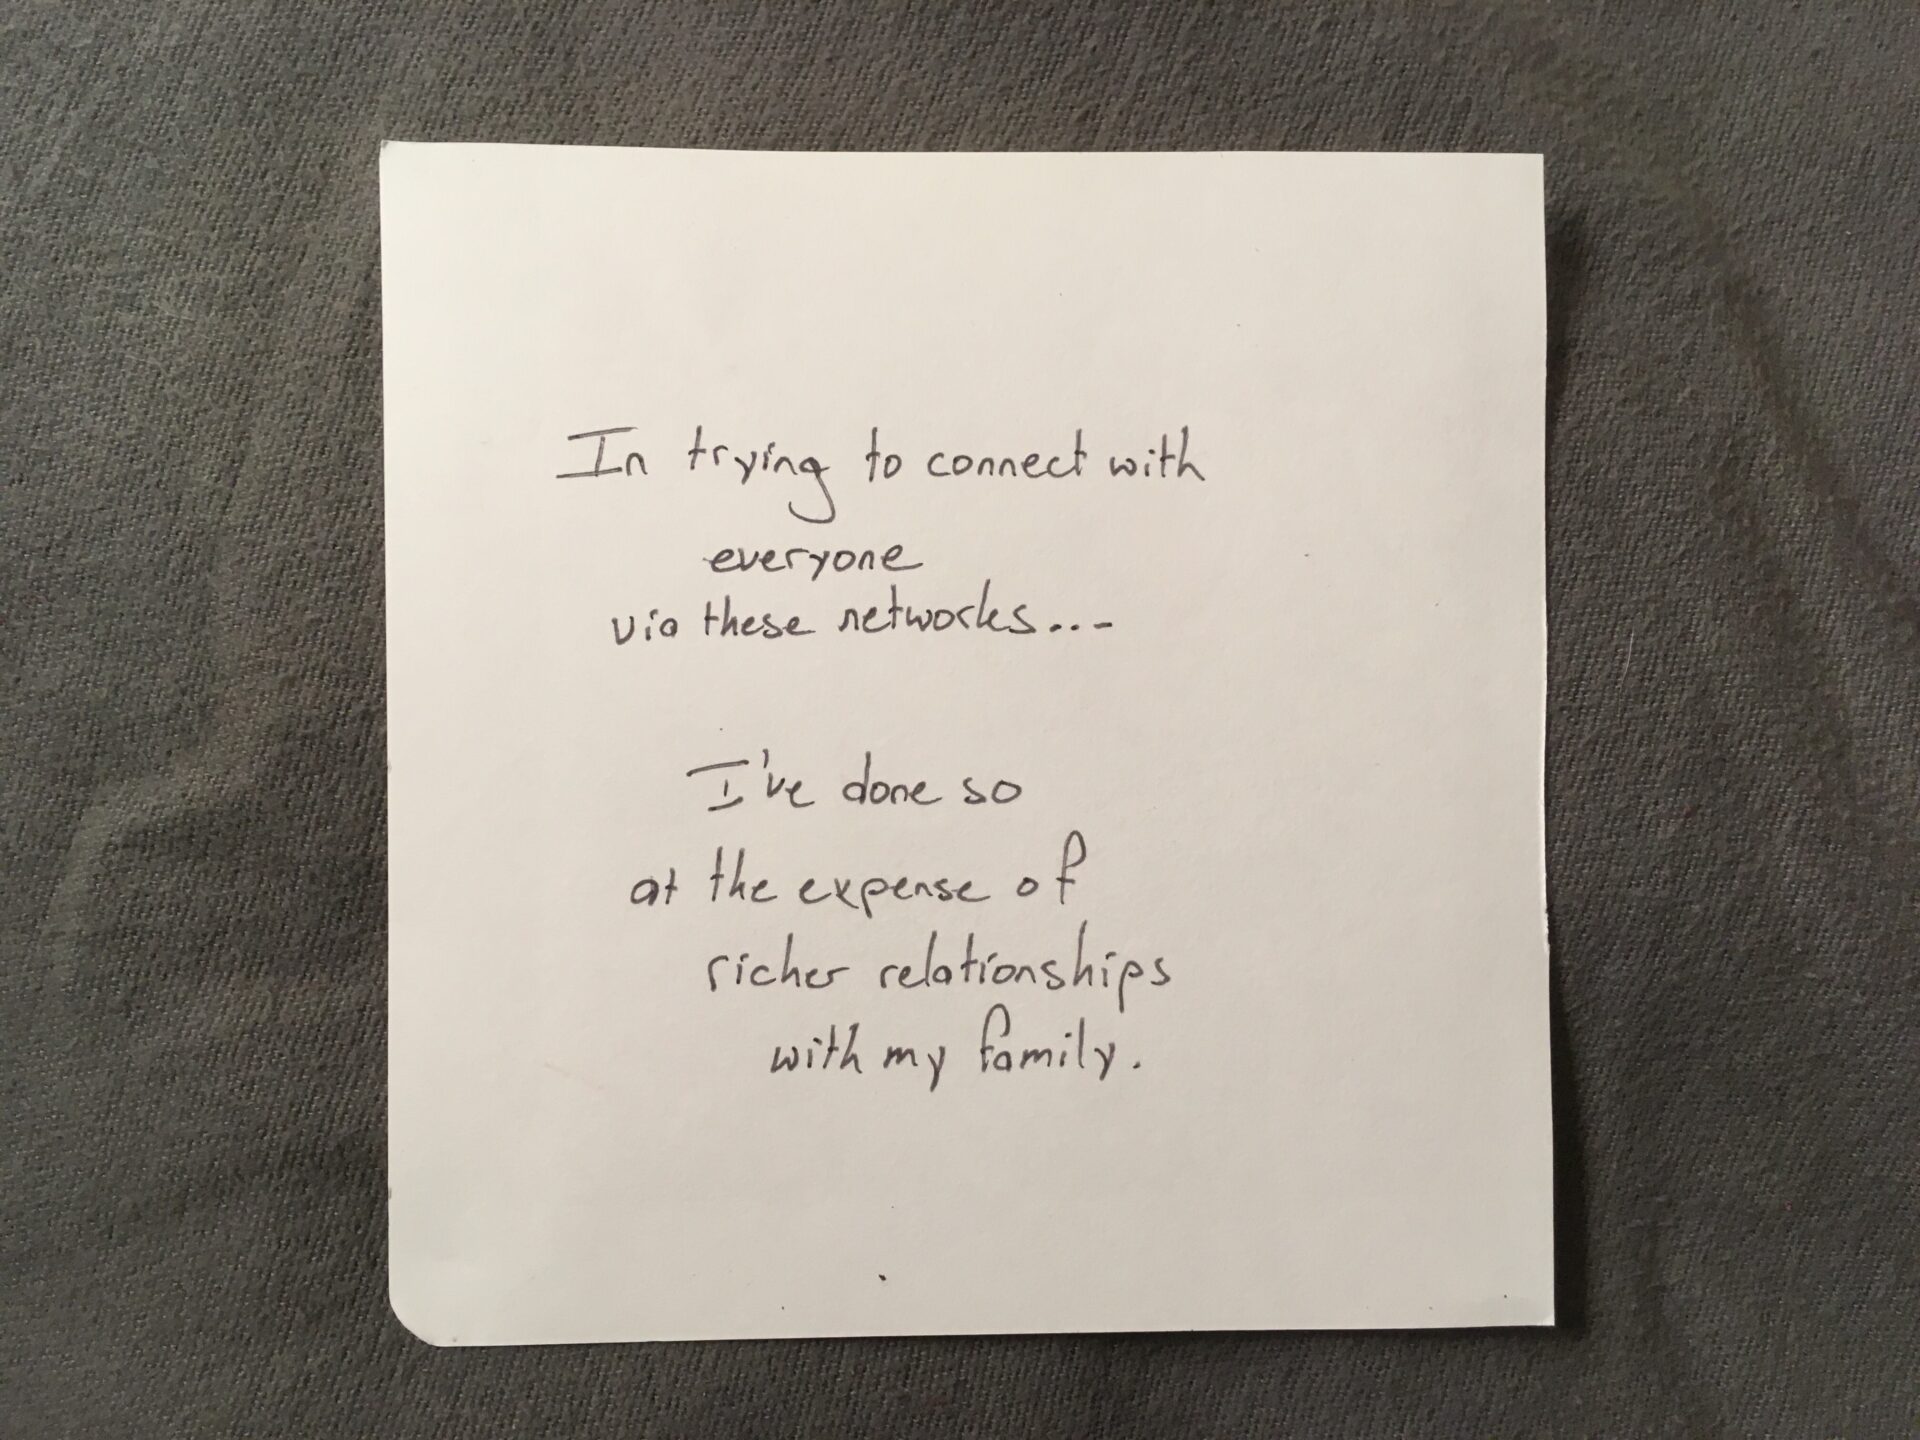 In trying to connect with
everyone
via these networks...
I've done so
at the expense of
richer relationships
with my family.